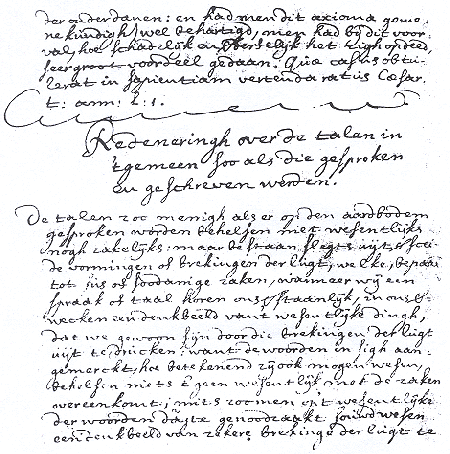 der onderdanen: en had men dit axioma
wel behartigd, men had bij dit voor
val, hoe schadelijk en het sigh opdeed,
seer groot voordeel gedaan. Quæ casus obtu-
lerat in sapientiam vertenda ratus Cæsar
t: ann: l: 1.
Redeneringh over de talen in
't gemeen soo als die gesproken
en geschreven werden.
De talen zoo menigh als er op den aardbodem
gesproken worden behelsen niet wesentlijks
nogh zakelijks: maar bestaan slegts uijt
de vormingen of brekingen der lugt, welke, bepaa
tot sus of soodanige zaken, wanneer wij een
spraak of taal horen ons in ons
wecken een denkbeeld van 't dingh,
dat we gewoon sijn door die brekingen der lugt
uijt te drucken, want de woorden in sigh aan-
gemerckt, hoe betekenend zij ook mogen wesen,
behelsen niets 't geen met de zaken
overeenkomt; mits zoo men
der woorden genoodzaakt souwd wesen
een denkbeeld van zekere brekinge der lugt te